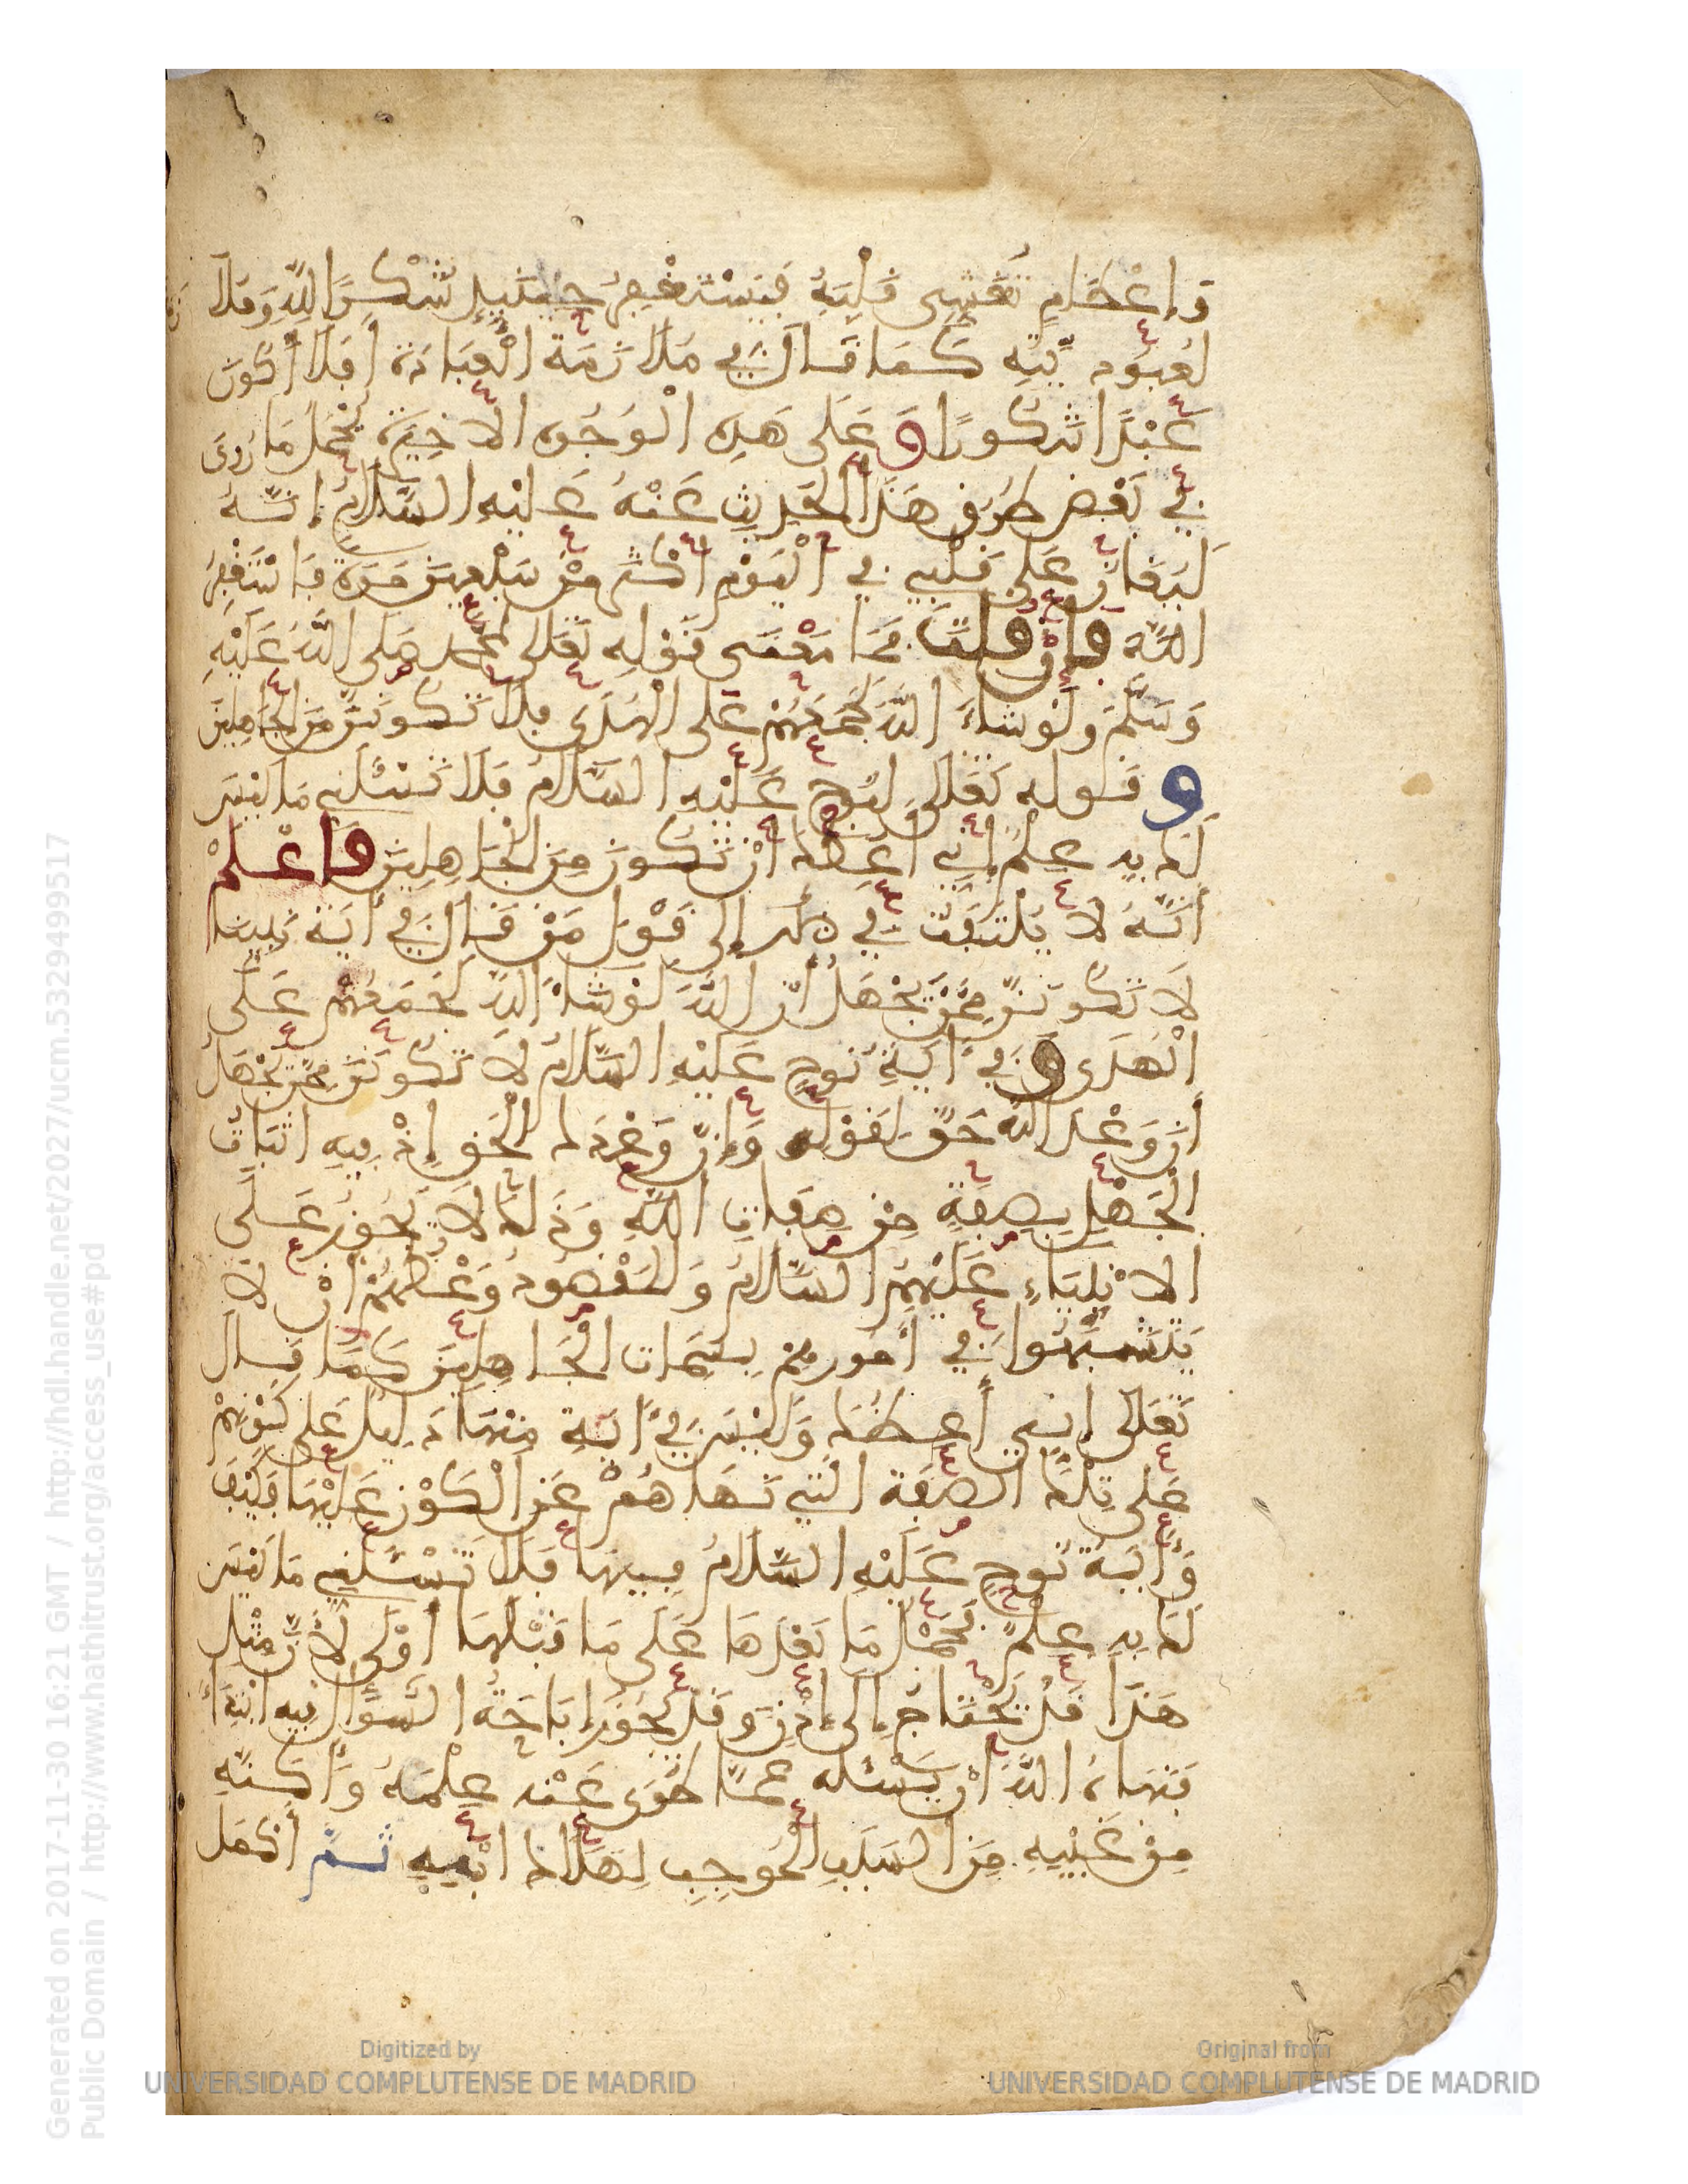 وَإِعْظَامٍ تَغْشِى قَلْبَهُ فَيَسْتَغْفِرُ حِينَئِذٍ شُكْرًا لِلَّهِ وَمُلَا
لِعُبُودِيَّتِهِ كَمَا قَالَ فِي مُلَازَمَةِ الْعِبَادَةِ أَفَلَا أَكُونَ
عَبْدًا شَكُورًا وَعَلَى هَذِهِ الْوُجُوهِ الْأَخِيرَةِ يُحْمَلُ مَا رُوِيَ
فِي بَعْضِ طُرُقِ هَذَا الْحَدِيثِ عَنْهُ عَلَيْهِ السَّلَامُ إِنَّهُ
لَيُغَانُ عَلَى قَلْبِي فِي الْيَوْمِ أَكْثَرَ مِنْ سَبْعِينَ مَرَّةً فَاسْتَغْفِرُ
اللَّهَ فَإِنْ قُلْتَ فَمَا مَعْنَى قَوْلِهِ تَعَالَى لِمُحَمَّدٍ صَلَّى اللَّهُ عَلَيْهِ
وَسَلَّمَ وَلَوْ شَاءَ اللَّهُ لَجَمَعَهُمْ عَلَى الْهُدَى فَلَا تَكُونَنَّ مِنَ الْجَاهِلِينَ
وَقَوْلِهِ تَعَالَى لِنُوحٍ عَلَيْهِ السَّلَامُ فَلَا تَسْئَلْنِي مَا لَيْسَ
لَكَ بِهِ عِلْمٌ إِنِّي أَعِظُكَ أَنْ تَكُونَ مِنَ الْجَاهِلِينَ فَاعْلَمْ
أَنَّهُ لَا يُلْتَفَتُ فِي ذَلِكَ إِلَى قَوْلِ مَنْ قَالَ فِي آيَةِ نَبِيِّنَا
لَا تَكُونَنَّ مِمَّنْ يَجْهَلُ أَنَّ اللَّهَ لَوْ شَاءَ اللَّهُ لَجَمَعَهُمْ عَلَى
الْهُدَى وَفِي آيَةِ نُوحٍ عَلَيْهِ السَّلَامُ لَا تَكُونَنَّ مِمَّنْ يَجْهَلُ
أَنَّ وَعْدَ اللَّهِ حَقٌّ لِقَوْلِهِ وَإِنَّ وَعْدَكَ الْحَقُّ إِذْ فِيهِ اثْبَاتُ
الْجَهْلِ بِصِفَةٍ مِنْ صِفَاتِ اللَّهِ وَذَلِكَ لَا يَجُوزُ عَلَى
الْأَنْبِيَاءِ عَلَيْهِمُ السَّلَامُ وَالْمَقْصُودُ وَعْظُهُمْ أَنْ لَا
يَتَشَبَّهُوا فِي أُمُورِهِمْ بِسِمَاتِ الْجَاهِلِينَ كَمَا قَالَ
تَعَالَى إِنِّي أَعِظُكَ وَلَيْسَ فِي آيَةٍ مِنْهَا دَلِيلٌ عَلَى كَوْنِهِمْ
عَلَى تِلْكَ الصِّفَةِ الَّتِي نَهَاهُمْ عَنِ الْكَوْنِ عَلَيْهَا فَكَيْفَ
وَآيَةُ نُوحٍ عَلَيْهِ السَّلَامُ فِيهَا فَلَا تَسْئَلْنِي مَا لَيْسَ
لَكَ بِهِ عِلْمٌ فَحَمْلُ مَا بَعْدَهَا عَلَى مَا قَبْلَهَا أَوْلَى لِأَنَّ مِثْلَ
هَذَا قَدْ يَحْتَاجُ إِلَى إِذْنٍ وَقَدْ تَجُوزُ إِبَاحَةُ السُّؤَالِ فِيهِ ابْتِدَاءً
فَنَهَاهُ اللَّهُ أَنْ يَسْئَلَهُ عَمَّا طَوَى عَنْهُ عِلْمَهُ وَأَكَنَّهِ
مِنْ غَيْبِهِ مِنَ السَّبَبِ الْمُوجِبِ لِهَلَاكِ ابْنِهِ ثُمَّ أَكْمَلَ
Generated on 2017-11-30 16:21 GMT / http://hdl.handle.net/2027/ucm.5329499517
Public Domain / http://www.hathitrust.org/access_use#pd
Digitized by
UNIVERSIDAD COMPLUTENSE DE MADRID
Original from
UNIVERSIDAD COMPLUTENSE DE MADRID